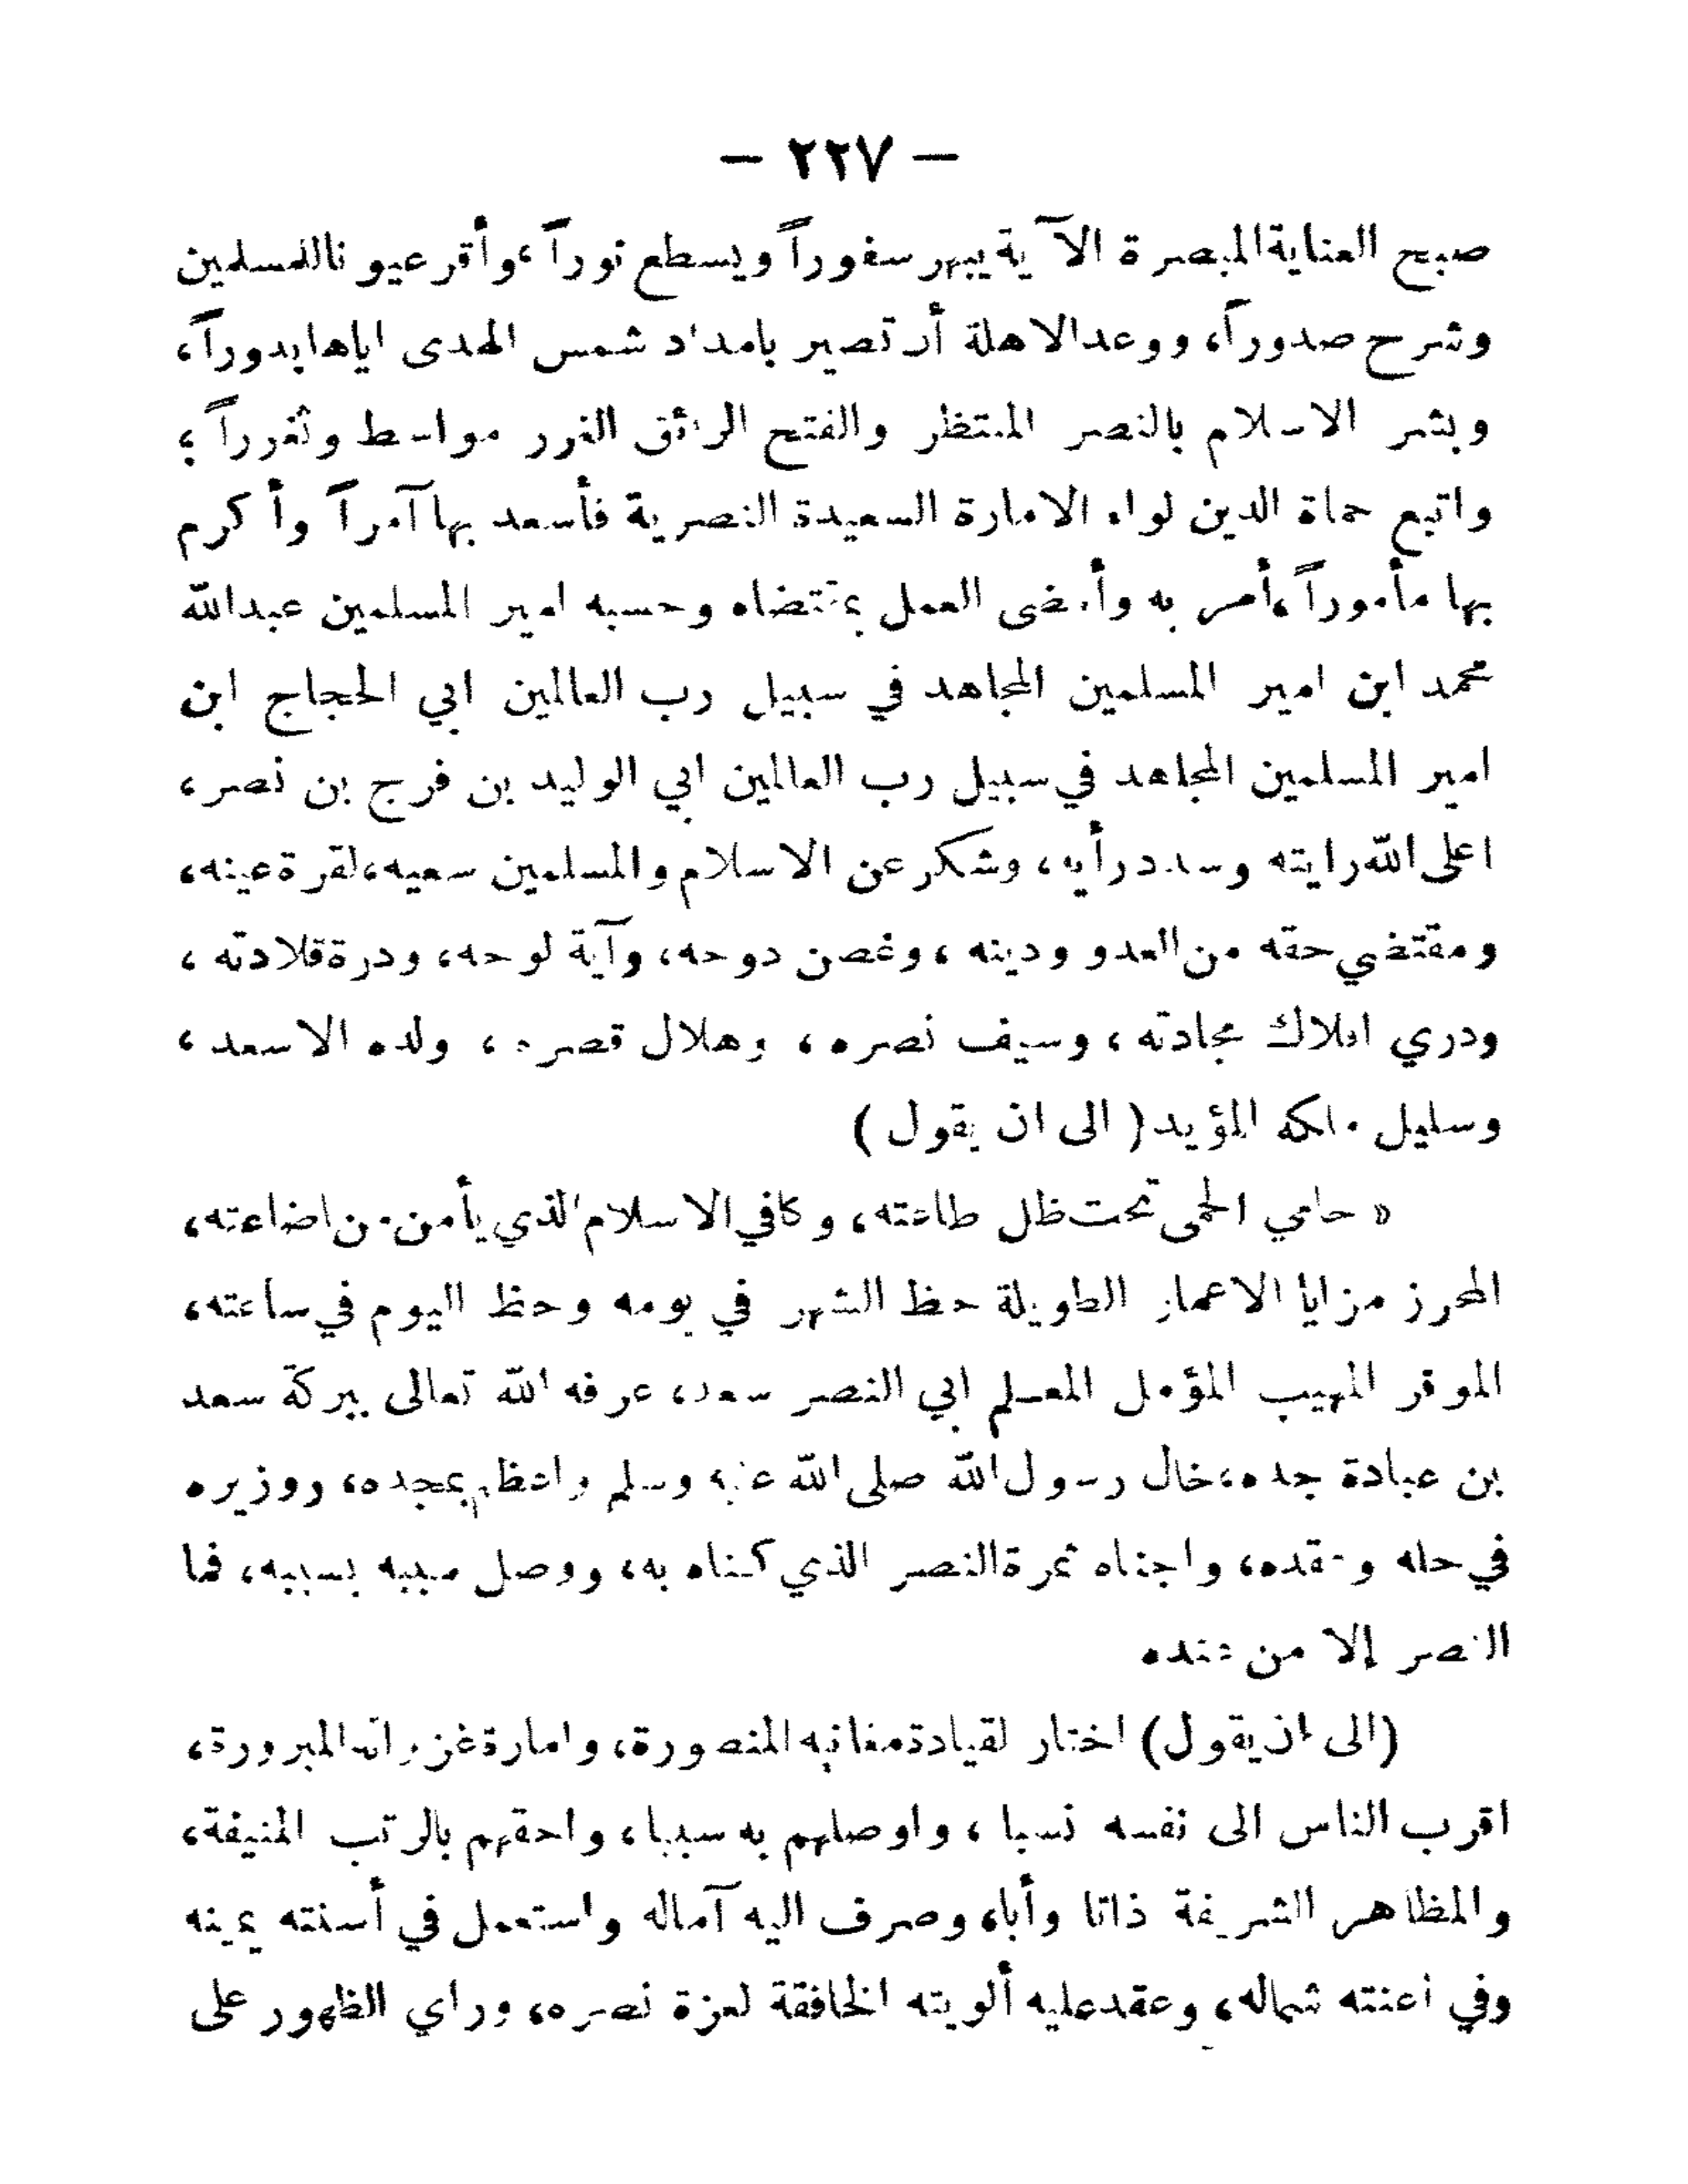 — ٢٢٧ —
صبح العناية المبصرة الآية يبهر سفوراً ويسطع نوراً، وأقر عيونا للمسلمين
وشرح صدوراً، ووعد الاهلة أن تصير بامداد شمس الهدى اياها بدوراً،
وبشر الاسلام بالنصر المنتظر والفتح الرائق الغرر مواسط وثغرراً؛
واتبع حماة الدين لواء الامارة السعيدة النصرية فأسعد بها آمراً وأكرم
بها مأموراً، أمر به وأمضى العمل بمقتضاه وحسبه امير المسلمين عبدالله
محمد ابن امير المسلمين المجاهد في سبيل رب العالمين ابي الحجاج ابن
امير المسلمين المجاهد في سبيل رب العالمين ابي الوليد بن فرج بن نصر،
اعلى الله رايته وسدد رأيه، وشكر عن الاسلام والمسلمين سعيه، لقرة عينه،
ومقتضي حقه من العدو ودينه، وغصن دوحه، وآية لوحه، ودرة قلادته،
ودري افلاك مجادته، وسيف نصره، وهلال قصره، ولده الاسعد،
وسليل ملكه المؤيد (الى ان يقول)
« حامي الحمى تحت ظل طاعته، وكافي الاسلام الذي يأمن من اضاعته،
المحرز مزايا الاعمار الطويلة حظ الشهر في يومه وحظ اليوم في ساعته،
الموقر المهيب المؤمل المعلم ابي النصر سعد، عرفه الله تعالى ببركة سعد
بن عبادة جده، خال رسول الله صلى الله عليه وسلم واعظم بمجده، ووزيره
في حله وعقده، واجناه ثمرة النصر الذي كناه به، ووصل سببه بسببه، فما
النصر إلا من عنده
(الى ان يقول) اختار لقيادة مغانيه المنصورة، وامارة غزواته المبرورة،
اقرب الناس الى نفسه نسبا، واوصلهم به سببا، واحقهم بالرتب المنيفة،
والمظاهر الشريفة ذاتا وأبا، وصرف اليه آماله واستعمل في أسنته يمينه
وفي اعنته شماله، وعقد عليه ألويته الخافقة لعزة نصره، وراي الظهور على